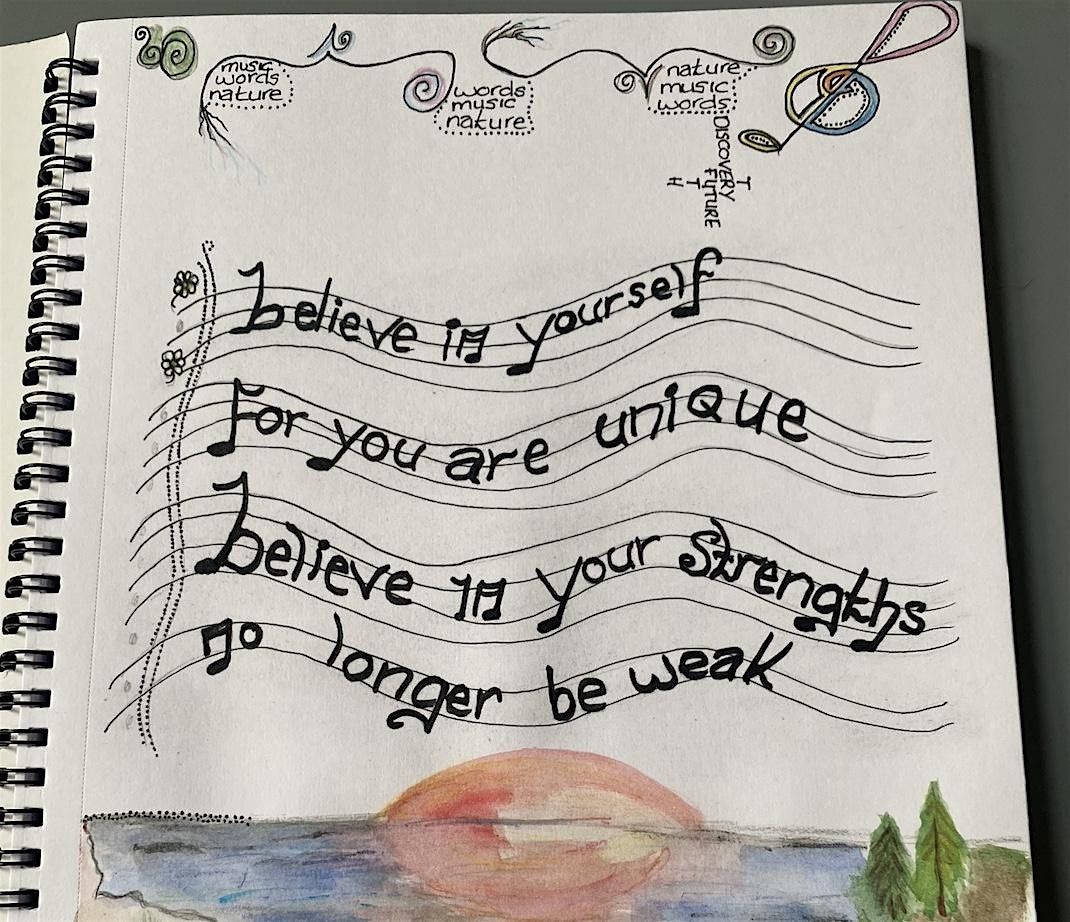 music
words
nature
words
music
nature
nature
music
words
DISCOVERY
FUTURE
believe in yourself
for you are unique
believe in your strengths
no longer be weak